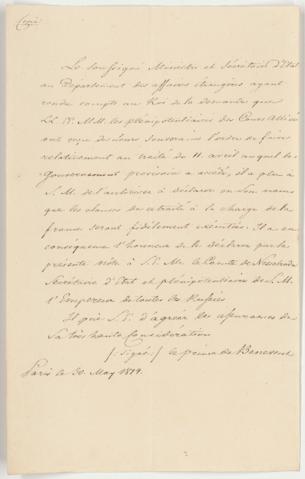 Copie
Le soussigné Ministre et Sécrétaire d'Etat
au Département des affaires étrangères ayant
rendu compte au Roi de la demande que
LL. EE. MM. les plénipotentiaires des Cours Alliées
ont reçu de leurs Souverains l'ordre de faire
relativement au traité du 11. avril auquel le
Gouvernement provisoire a accédé, il a plu à
S. M. de l'autoriser à déclarer en Son nom
que les clauses du traité à la charge de la
france seront fidèlement exécutées. Il a en
conséquence l'honneur de le déclarer par la
présente note à S. E. M. le Comte de Nesselrode
Secrétaire d'Etat et plénipotentiaire de S. M.
l'Empereur de toutes les Russies
Il prie S. E. d'agréer les assurances de
Sa très haute Considération
(: Signé :) le prince de Benevent
Paris le 30. May 1814.